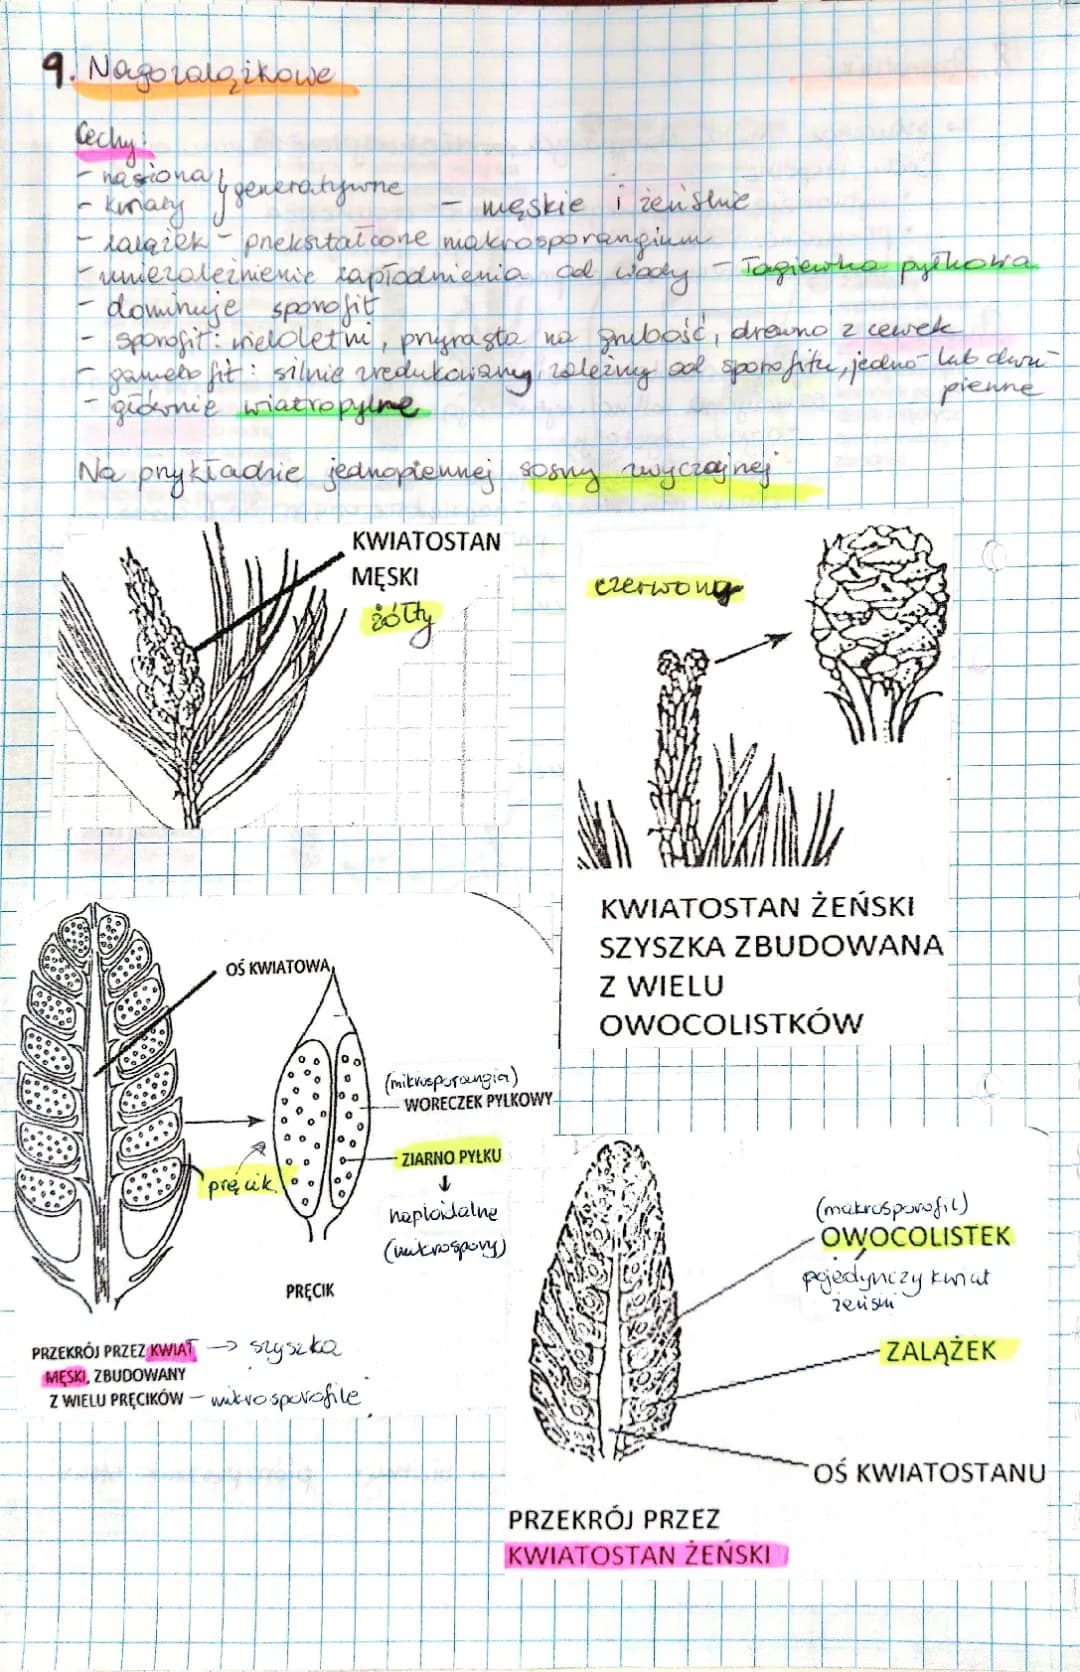 9. Nagozalążkowe
Cechy:
- nasiona } generatywne
- kwiaty - męskie i żeńskie
- zalążek - przekształcone makrosporangium
- uniezależnienie zapłodnienia od wody - łagiewka pyłkowa
- dominuje sporofit
- sporofit: wieloletni, przyrasta na grubość, drewno z cewek
- gametofit: silnie zredukowany, zależny od sporofitu, jedno- lub dwu-
pienne
- głównie wiatropylne
Na przykładzie jednopiennej sosny zwyczajnej
KWIATOSTAN
MĘSKI
żółty
czerwony
KWIATOSTAN ŻEŃSKI
SZYSZKA ZBUDOWANA
Z WIELU
OWOCOLISTKÓW
OŚ KWIATOWA
(mikrosporangia)
WORECZEK PYŁKOWY
ZIARNO PYŁKU
haploidalne
(mikrospory)
pręcik
PRĘCIK
PRZEKRÓJ PRZEZ KWIAT → szyszka
MĘSKI, ZBUDOWANY
Z WIELU PRĘCIKÓW - mikrosporofile
(makrosporofil)
OWOCOLISTEK
pojedynczy kwiat
żeński
ZALĄŻEK
OŚ KWIATOSTANU
PRZEKRÓJ PRZEZ
KWIATOSTAN ŻEŃSKI